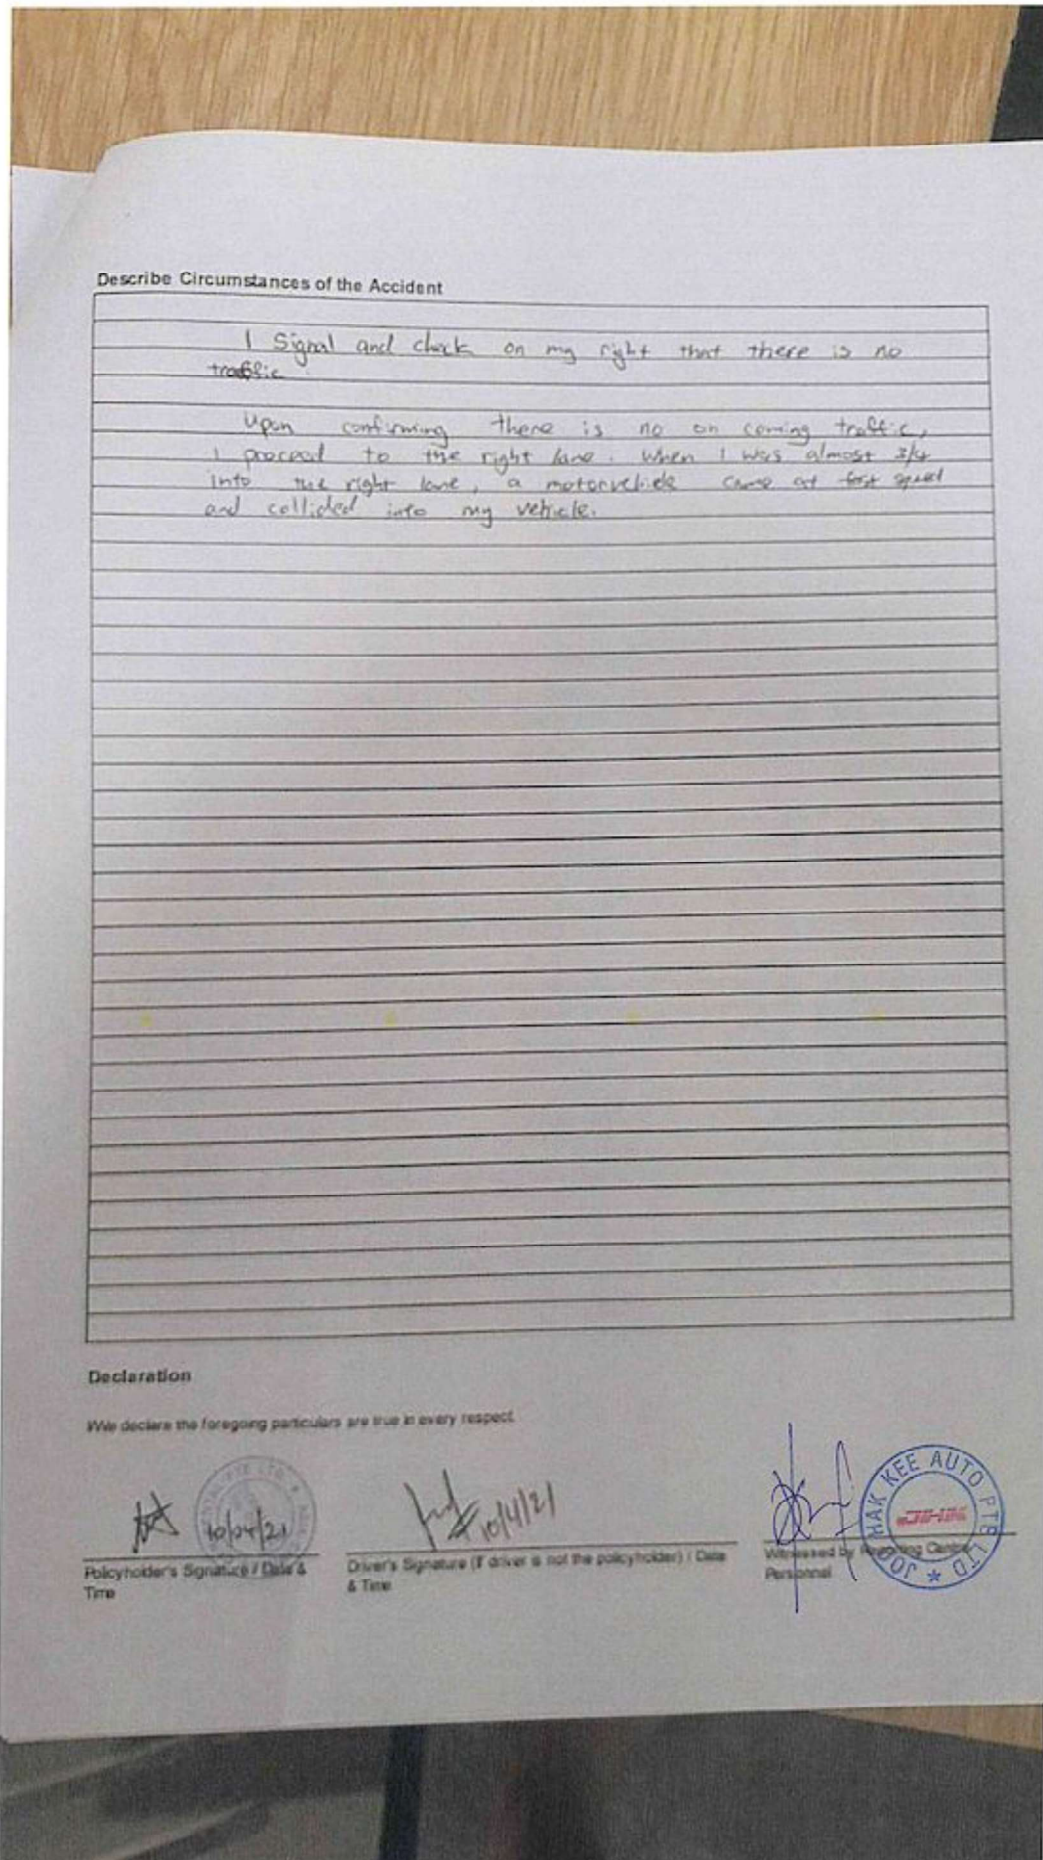 Describe Circumstances of the Accident
I Signal and check on my right that there is no
traffic
Upon confirming there is no on coming traffic,
I proceed to the right lane. When I was almost 3/4
into the right lane, a motorvehicle came at fast speed
and collided into my vehicle.
Declaration
I/We declare the foregoing particulars are true in every respect.
PTE LTD
10/04/21
10/4/21
HAK KEE AUTO PTE LTD
JHK
Policyholder's Signature / Date &
Time
Driver's Signature (if driver is not the policyholder) / Date
& Time
Witnessed by Reporting Centre
Personnel